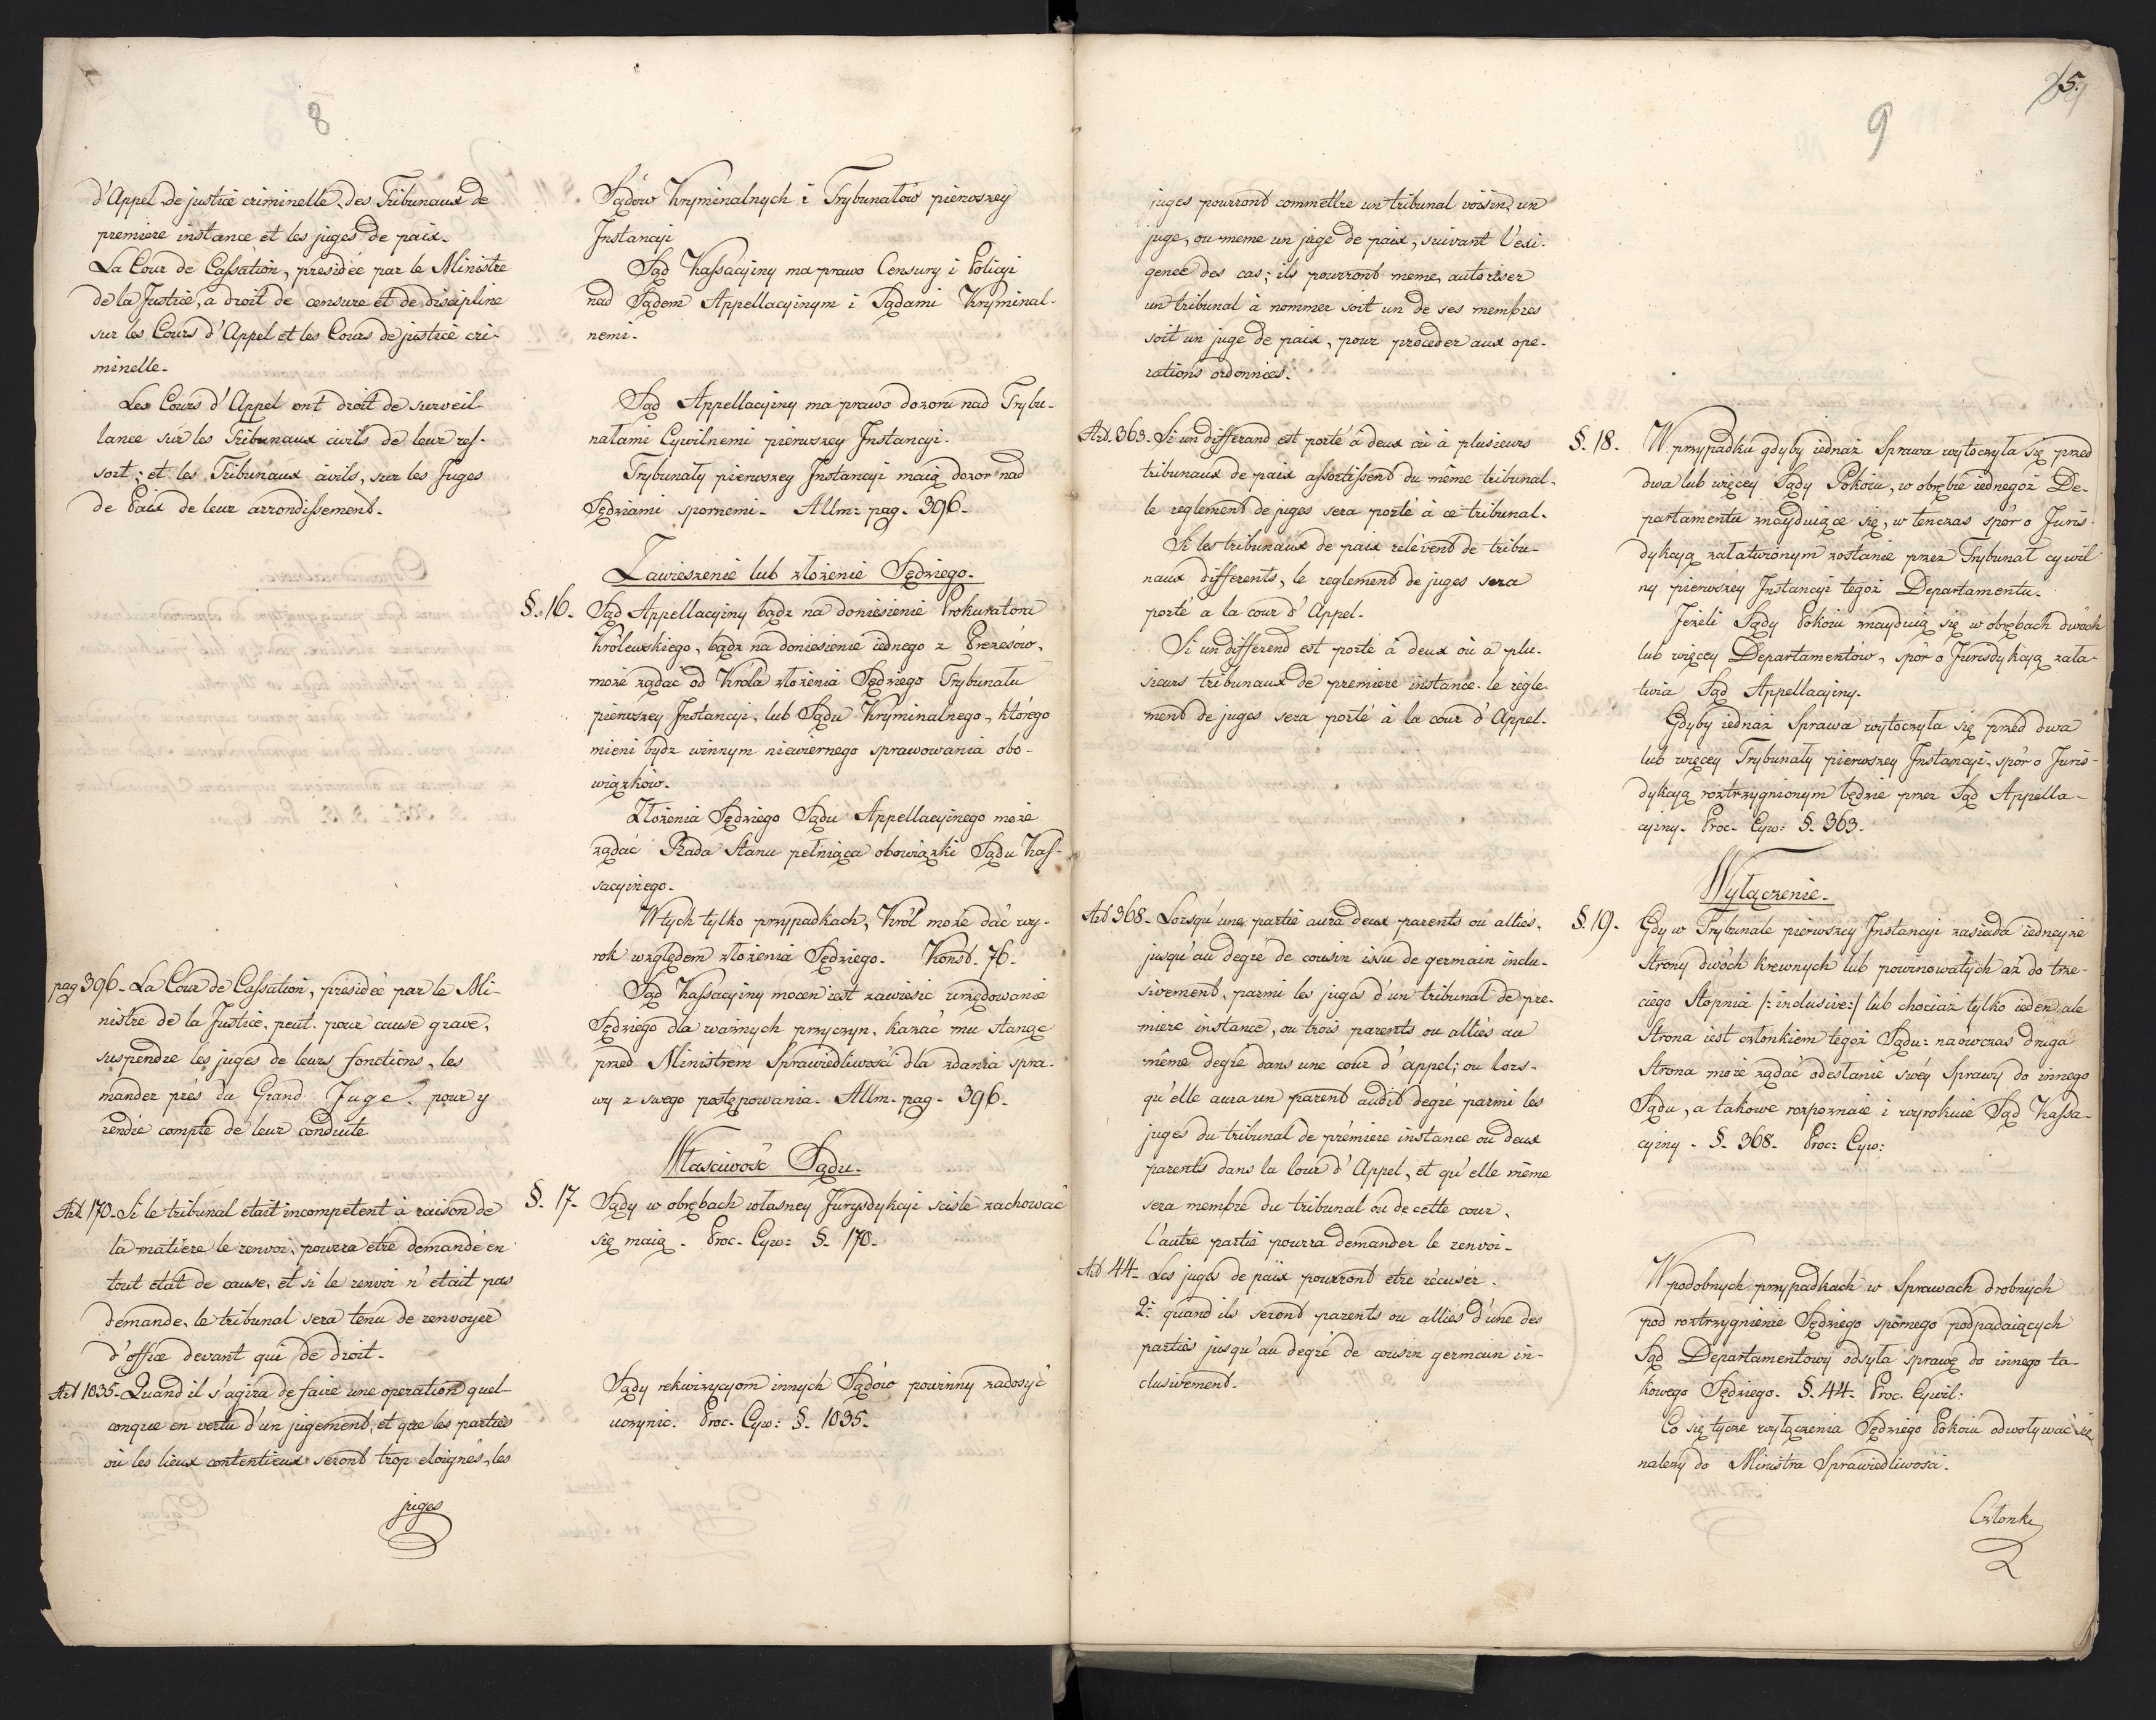 8
d'Appel de justice criminelle, des Tribunaux de
premiere instance et les juges de paix.
La Cour de Cassation, presidée par le Ministre
de la Justice, a droit de censure et de discipline
sur les Cours d'Appel et les Cours de justice cri-
minelle.
Les Cours d'Appel ont droit de surveil-
lance sur les Tribunaux civils de leur res-
sort; et les Tribunaux civils, sur les Juges
de Paix de leur arrondissement.
pag 396. La Cour de Cassation, presidée par le Mi-
nistre de la Justice, peut, pour cause grave,
suspendre les juges de leurs fonctions, les
mander prés du Grand Juge, pour y
rendre compte de leur conduite
Art. 170. Si le tribunal etait incompetent à raison de
la matiere le renvoi, pourra etre demandé en
tout etat de cause, et si le renvoi n'etait pas
demande, le tribunal sera tenu de renvoyer
d'office devant qui de droit.
Art 1035. Quand il s'agira de faire une operation quel-
conque en vertu d'un jugement, et que les parties
ou les lieux contentieux seront trop eloignés, les
juges
Sądow Kryminalnych i Trybunałow pierwszey
Instancyi
Sąd Kassacyiny ma prawo Censury i Policyi
nad Sądem Appellacyinym i Sądami Kryminal-
nemi.
Sąd Appellacyiny ma prawo dozoru nad Trybu-
nałami Cywilnemi pierwszey Instancyi.
Trybunały pierwszey Instancyi maią dozor nad
Sędziami spornemi. Allm: pag. 396.
Zawieszenie lub złożenie Sędziego.
§. 16. Sąd Appellacyiny bądz na doniesienie Prokuratora
Królewskiego, bądz na doniesienie iednego z Prezesów,
może żądać od Króla złożenia Sędziego Trybunału
pierwszey Instancyi, lub Sądu Kryminalnego, którego
mieni bydz winnym niewiernego sprawowania obo-
wiązków.
Złożenia Sędziego Sądu Appellacyinego może
żądać Rada Stanu pełniąca obowiązki Sądu Kas-
sacyinego.
W tych tylko przypadkach, Król może dać wy-
rok względem złożenia Sędziego. Konst. 76.
Sąd Kassacyiny mocen iest zawiesić urzędowanie
Sędziego dla ważnych przyczyn, kazać mu stanąć
przed Ministrem Sprawiedliwości dla zdania spra-
wy z swego postępowania. Allm. pag. 396.
Własciwość Sądu.
§. 17. Sądy w obrębach własney Jurysdykcyi scisle zachować
się maią. Proc. Cyw: §. 170.
Sądy rekwizycyom innych Sądów powinny zadosyć
uczynić. Proc. Cyw: §. 1035.
9
5.
juges pourront commettre un tribunal voisin, un
juge, ou meme un juge de paix, suivant l'exi-
gence des cas; ils pourront meme, autoriser
un tribunal à nommer soit un de ses membres
soit un juge de paix, pour proceder aux ope-
rations ordonnées.
Art. 363. Si un differand est porté à deux où à plusieurs
tribunaux de paix assortissent du même tribunal.
le reglement de juges sera porté à ce tribunal.
Si les tribunaux de paix relévent de tribu-
naux differents, le reglement de juges sera
porté a la cour d'Appel.
Si un différend est porté à deux où a plu-
sieurs tribunaux de premiere instance. le régle-
ment de juges sera porté à la cour d'Appel.
Art 368. Lorsqu'une partie aura deux parents ou alliés,
jusqu'au degré de cousin issu de germain inclu-
sivement, parmi les juges d'un tribunal de pre-
miere instance, ou trois parents ou alliés au
même degré dans une cour d'appel; ou lors-
qu'elle aura un parent audit degré parmi les
juges du tribunal de prémiere instance ou deux
parents dans la Cour d'Appel, et qu'elle même
sera membre du tribunal ou de cette cour,
l'autre partie pourra demander le renvoi.
Art 44. Les juges de paix pourront etre récusér.
2: quand ils seront parents ou alliés d'une des
parties jusqu'au degré de cousin germain in-
clusivement.
§. 18. W przypadku gdyby iednaż Sprawa wytoczyła się przed
dwa lub więcey Sądy Pokoiu, w obrębie iednegoż De-
partamentu znayduiące się, w tenczas spór o Juris-
dykcyą załatwionym zostanie przez Trybunał cywil
ny pierwszéy Instancyi tegoż Departamentu.
Jeżeli Sądy Pokoiu znayduią się w obrębach dwóch
lub więcey Departamentów, spór o Jurisdykcyą zała-
twia Sąd Appellacyiny.
Gdyby iednaż Sprawa wytoczyła się przed dwa
lub więcey Trybunały pierwszey Instancyi, spór o Juris-
dykcyą roztrzygnionym będzie przez Sąd Appella-
cyiny. Proc. Cyw: §. 363.
Wyłączenie.
§. 19. Gdy w Trybunale pierwszey Instancyi zasiada iedneyże
Strony dwóch krewnych lub powinowatych aż do trze-
ciego Stopnia /: inclusive:/ lub chociaż tylko ieden, ale
Strona iest członkiem tegoż Sądu: naówczas druga
Strona może żądać odesłanie swéy Sprawy do innego
Sądu, a takowe rozpoznaie i wyrokuie Sąd Kassa-
cyiny. §. 368. Proc: Cyw:
W podobnych przypadkach w Sprawach drobnych
pod roztrzygnienie Sędziego spornego podpadaiących
Sąd Departamentowy odsyła sprawę do innego ta-
kowego Sędziego. §. 44. Proc. Cywil:
Co się tycze wyłączenia Sędziego Pokoiu odwoływać się
należy do Ministra Sprawiedliwości.
Członki